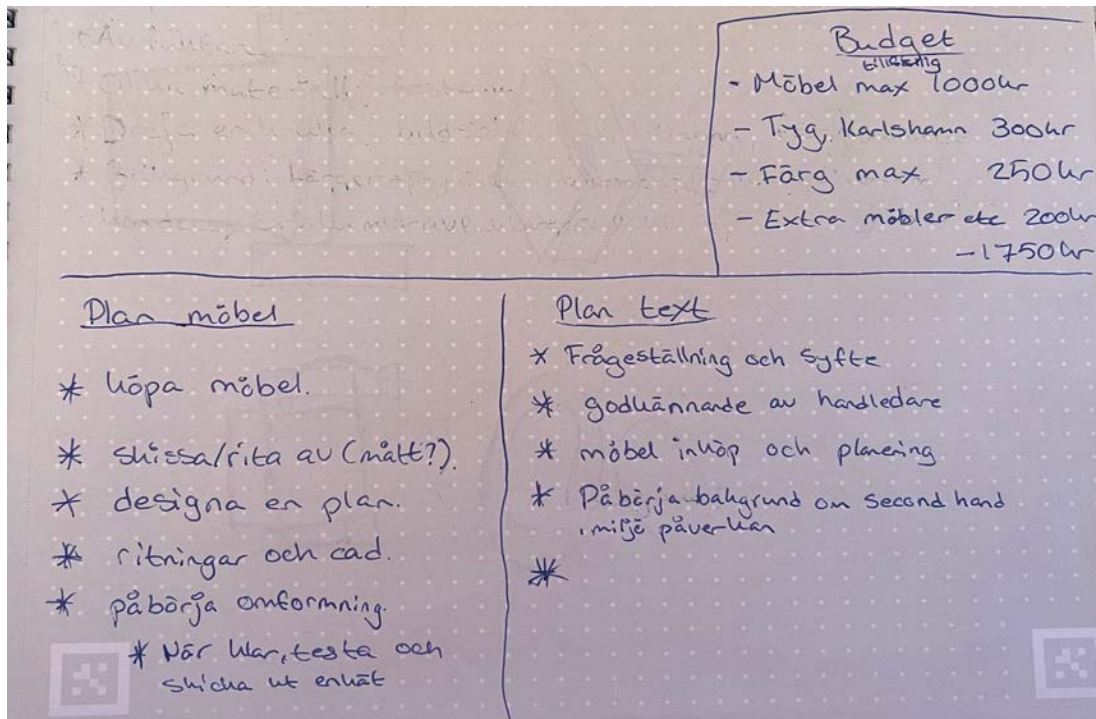 Budget
tillfällig
- Möbel max 1000kr
- Tyg, Karlshamn 300kr
- Färg max 250kr
- Extra möbler etc 200kr
-1750kr
Plan möbel
* köpa möbel.
* skissa/rita av (mått?).
* designa en plan.
* ritningar och cad.
* påbörja omformning.
* När klar, testa och
skicka ut enkät
Plan text
* Frågeställning och Syfte
* godkännande av handledare
* möbel inköp och planering
* Påbörja bakgrund om Second hand
, miljö påverkan
*